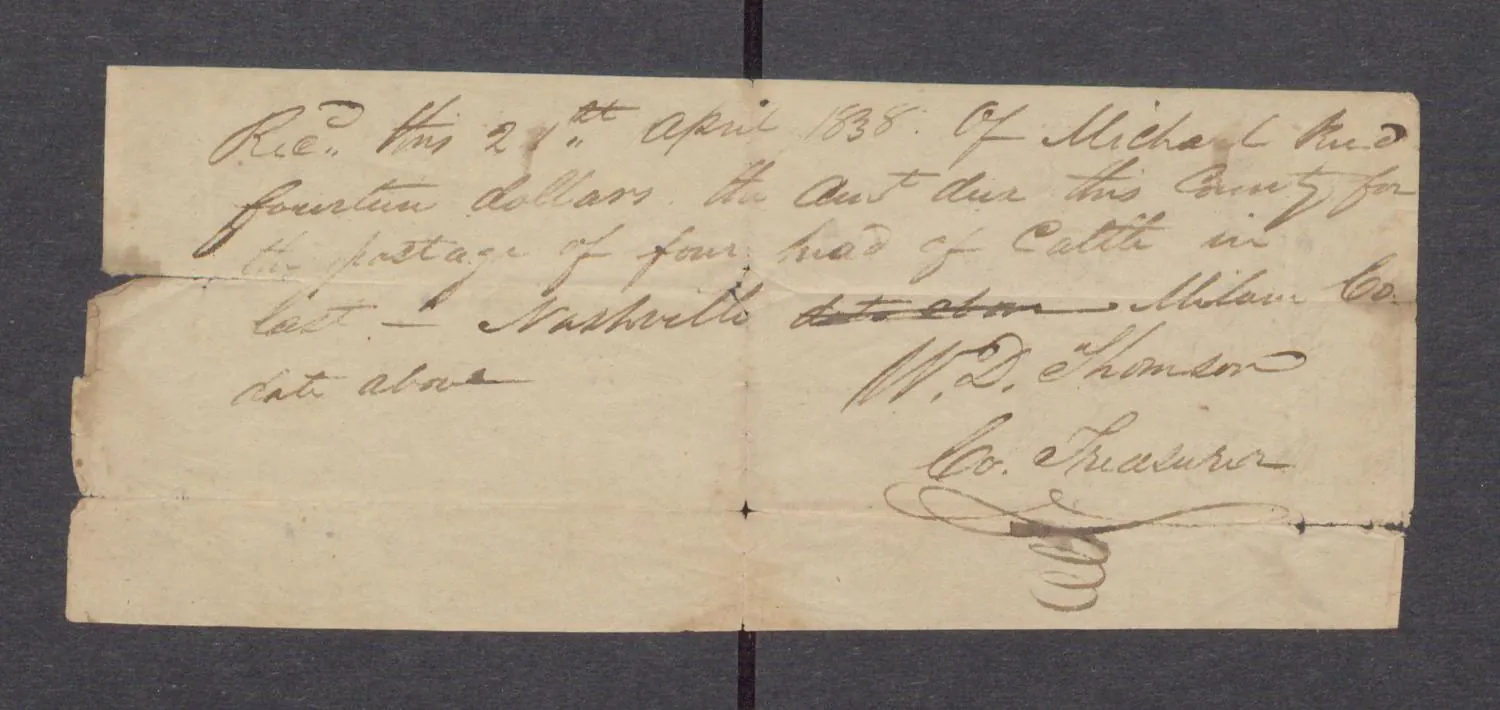 Recd. this 21st April 1838. Of Michael Reed
fourteen dollars. the amt due this County for
the postage of four head of Cattle in
last – Nashville date above Milam Co.
date above
W. D. Thomson
Co. Treasurer